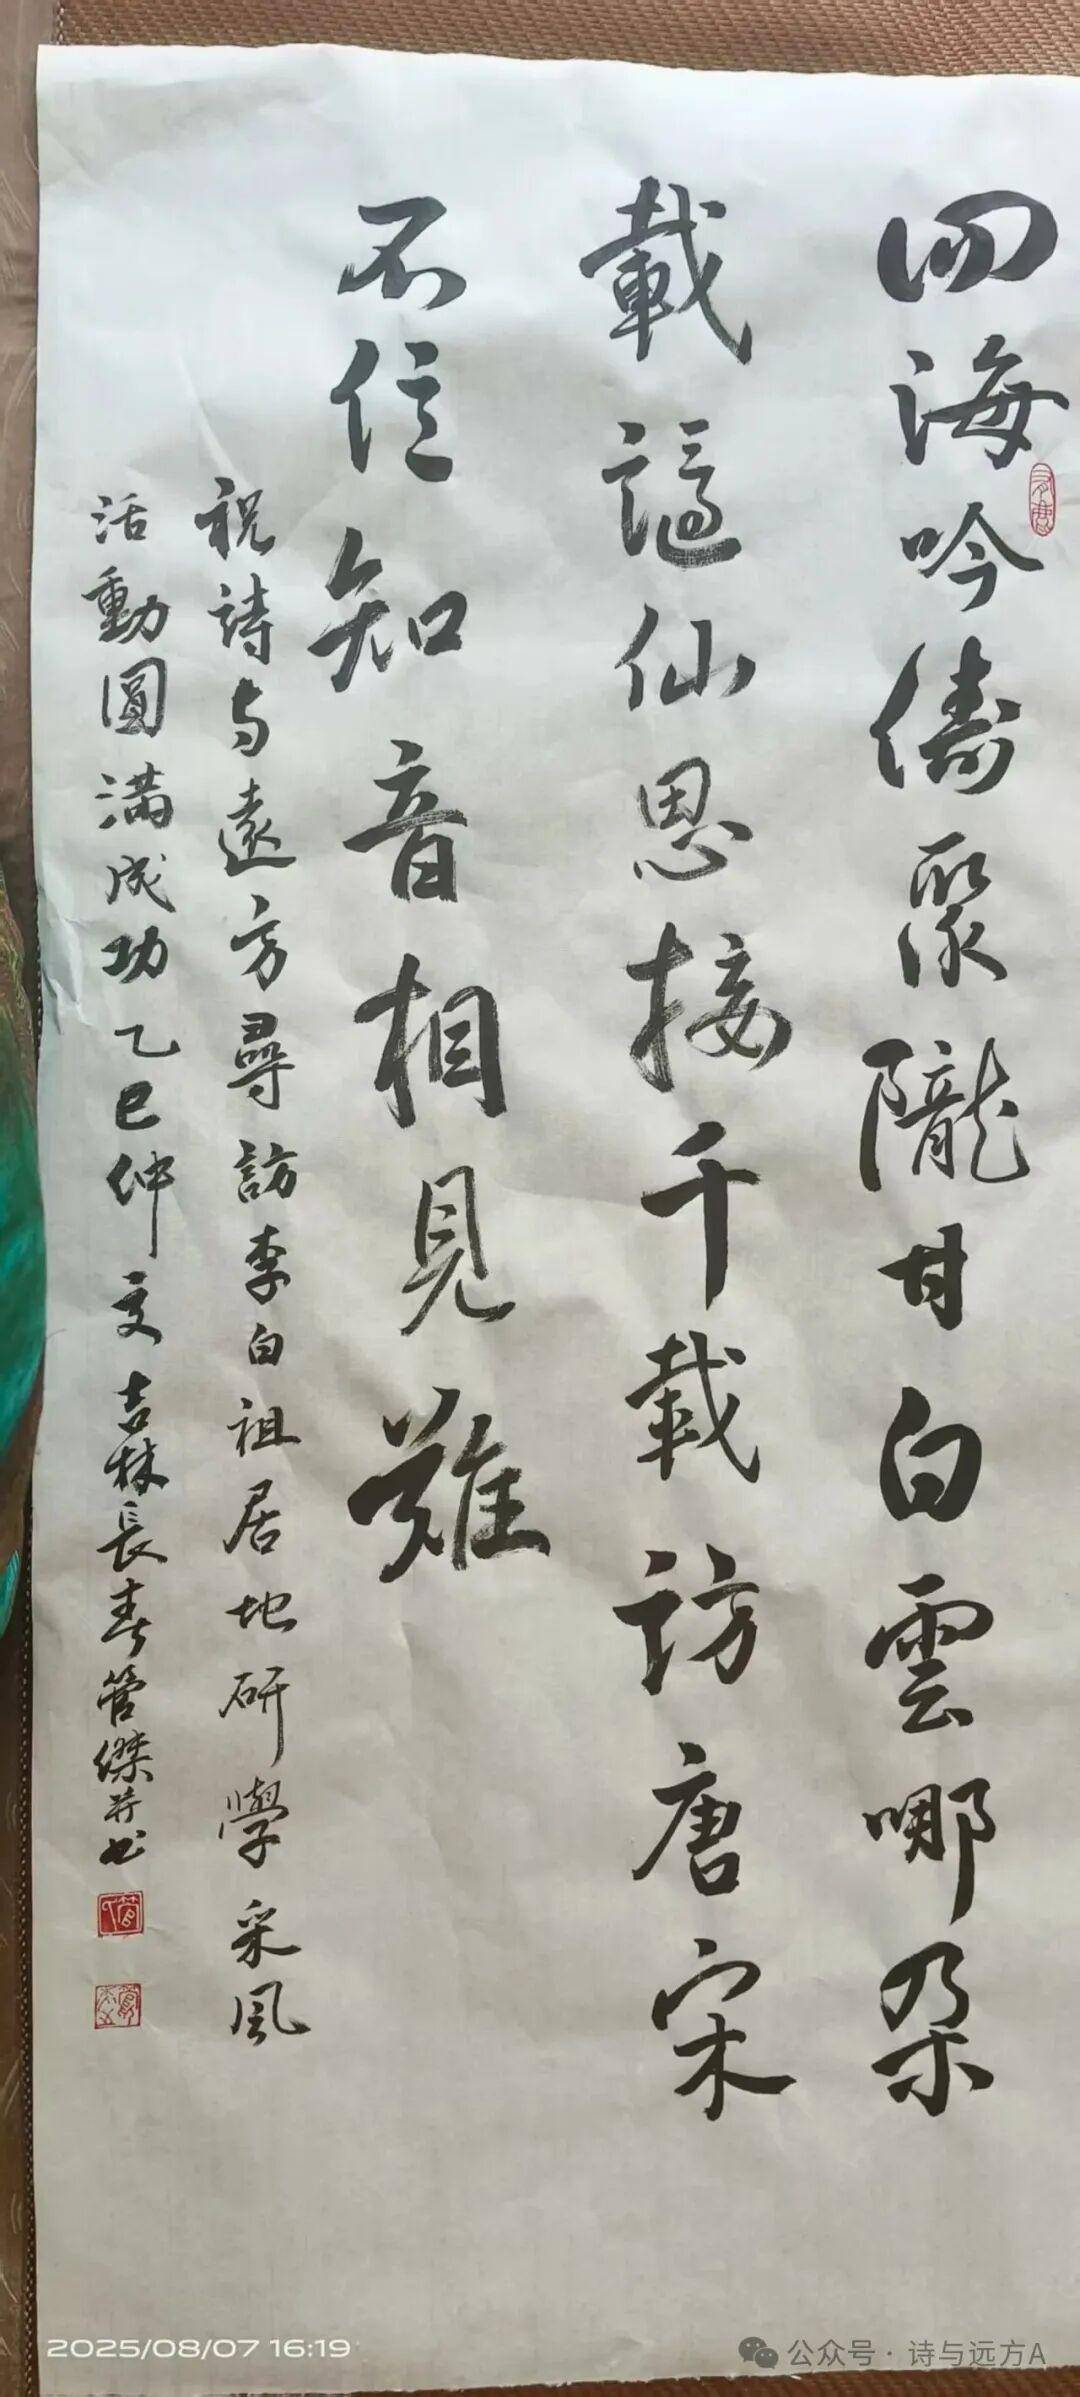 四海吟儔聚隴甘白雲哪朵
載謫仙思接千載訪唐宋
不信知音相見難
祝詩与遠方尋訪李白祖居地研學采風
活動圓滿成功乙巳仲夏吉林長春管傑并书
2025/08/07 16:19
公众号·诗与远方A